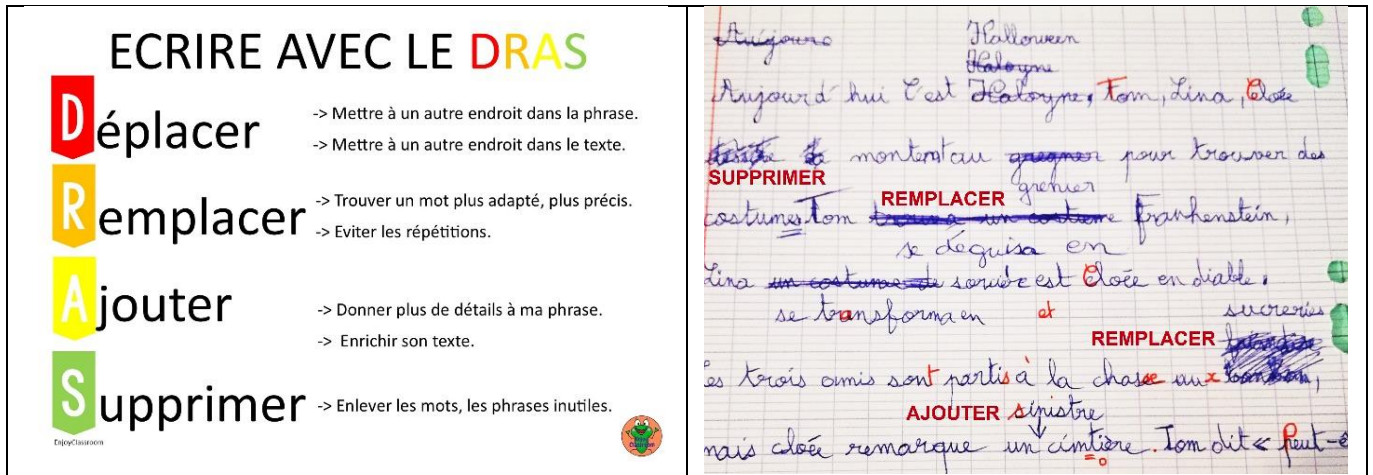 ECRIRE AVEC LE DRAS
Déplacer
-> Mettre à un autre endroit dans la phrase.
-> Mettre à un autre endroit dans le texte.
Remplacer
-> Trouver un mot plus adapté, plus précis.
-> Eviter les répétitions.
Ajouter
-> Donner plus de détails à ma phrase.
-> Enrichir son texte.
Supprimer
-> Enlever les mots, les phrases inutiles.
EnjoyClassroom
Halloween
Aujourd'hui C'est Tom, Lina, Cloée
montent au pour trouver des
SUPPRIMER
grenier
REMPLACER
costumes Tom Frankenstein,
se déguisa en
Lina est Cloée en diable.
se transforma en et sucreries
REMPLACER
es trois amis sont partis à la chasse aux
AJOUTER sinistre
mais cloée remarque un cimtière. Tom dit « Peut-ê